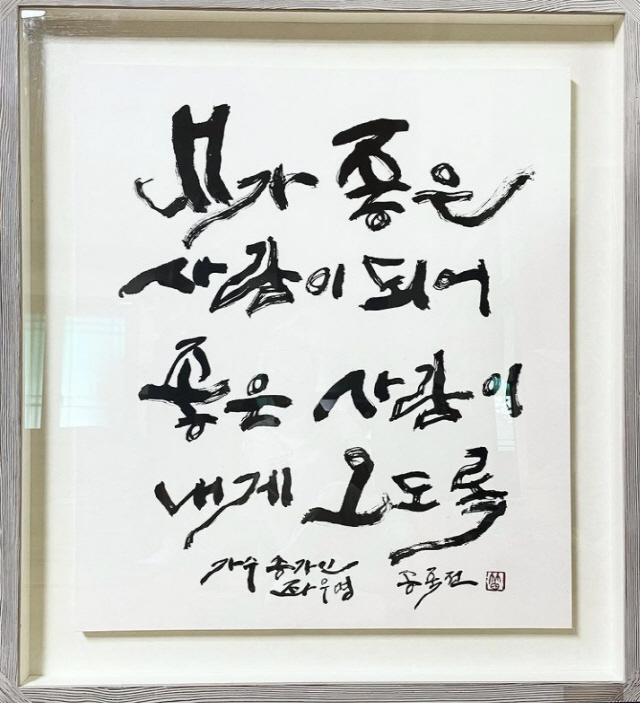 내가 좋은
사람이 되어
좋은 사람이
내게 오도록
가수 송가인
좌우명